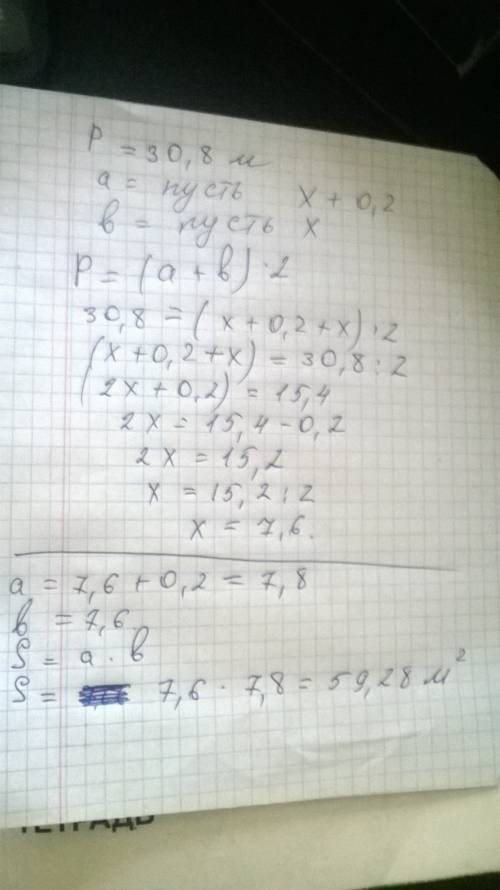 P = 30,8 м
a = пусть x + 0,2
b = пусть x
P = (a + b) · 2
30,8 = (x + 0,2 + x) · 2
(x + 0,2 + x) = 30,8 : 2
(2x + 0,2) = 15,4
2x = 15,4 - 0,2
2x = 15,2
x = 15,2 : 2
x = 7,6.
a = 7,6 + 0,2 = 7,8
b = 7,6
S = a · b
S = 7,6 · 7,8 = 59,28 м²
ТЕТРАДЬ